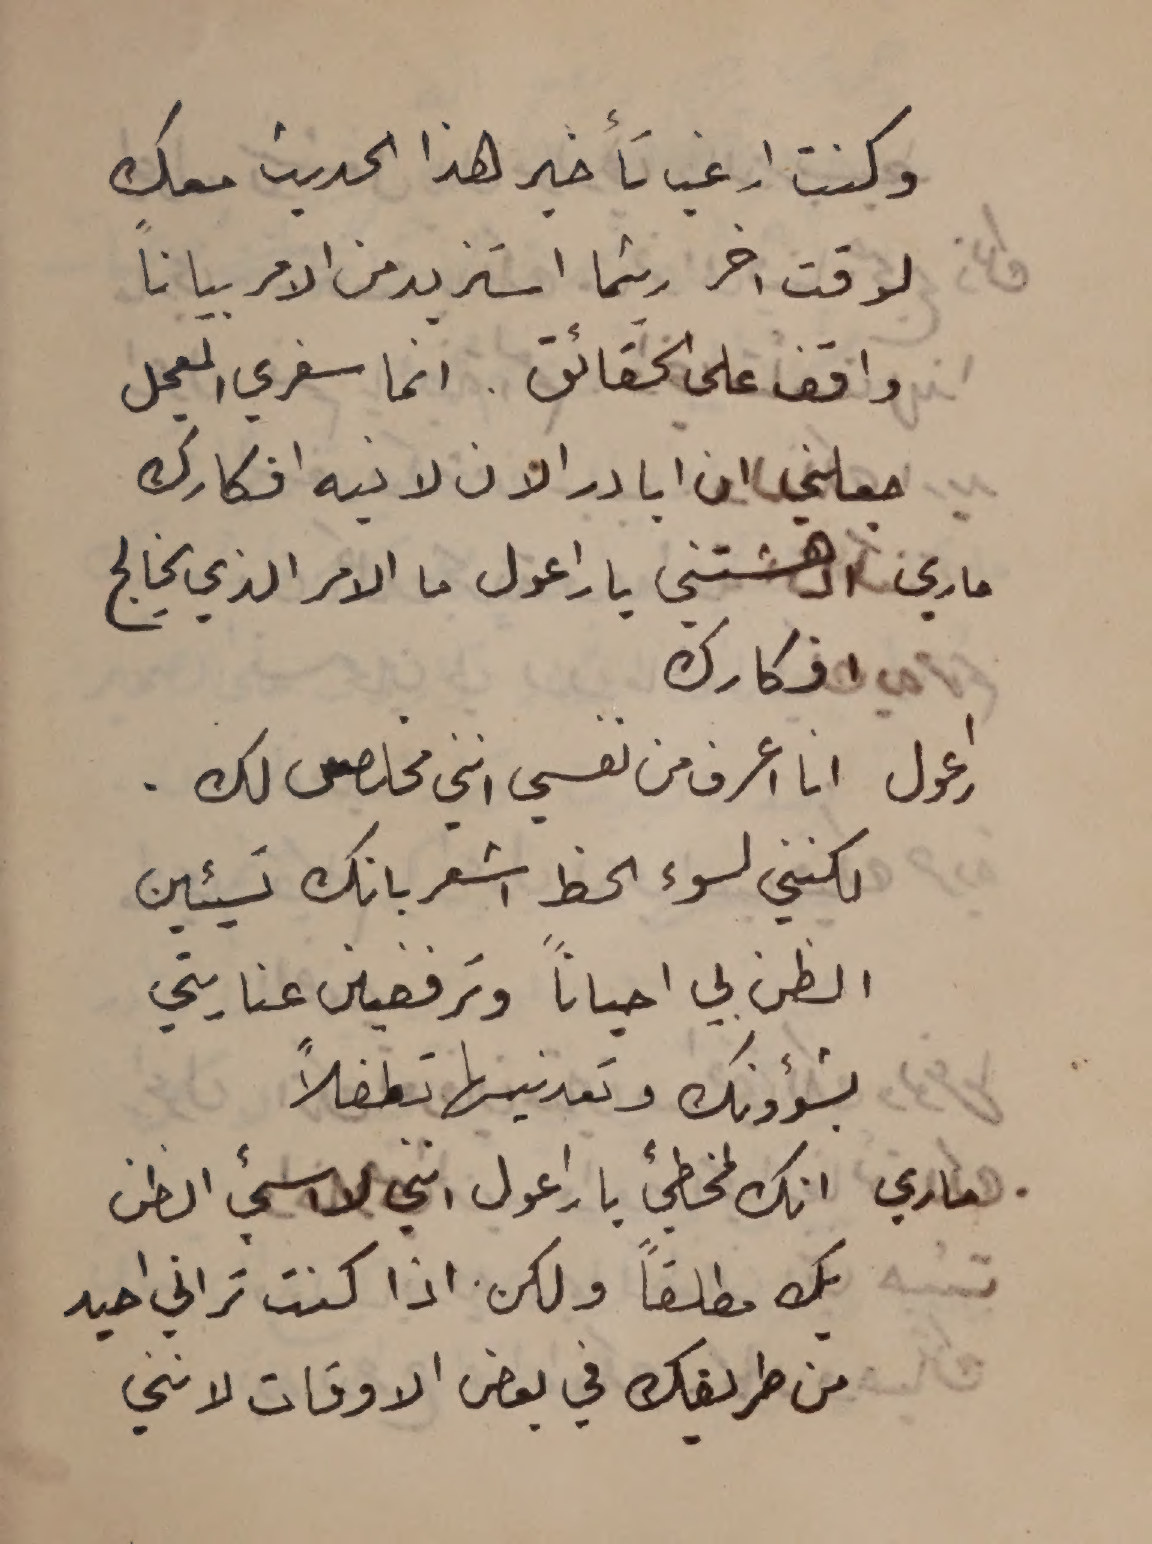 وكنت ارغب تأخير هذا الحديث معك
لوقت اخر ريثما استزيد من الامر بياناً
واقف على الحقائق . انما سفري المعجل
جعلني ان ابادر الان لانبه افكارك
ماري ادهشتني يا راعول ما الامر الذي يخالج
افكارك
راعول انا اعرف من نفسي انني مخلص لك .
لكنني لسوء الحظ اشعر بانك تسيئين
الظن بي احياناً وترفضين عنايتي
بشؤونك وتعدنيها تطفلاً
ماري انك لمخطئ يا راعول انني لا اسيُ الظن
بك مطلقاً ولكن اذا كنت تراني احيد
من طريقك في بعض الاوقات لانني